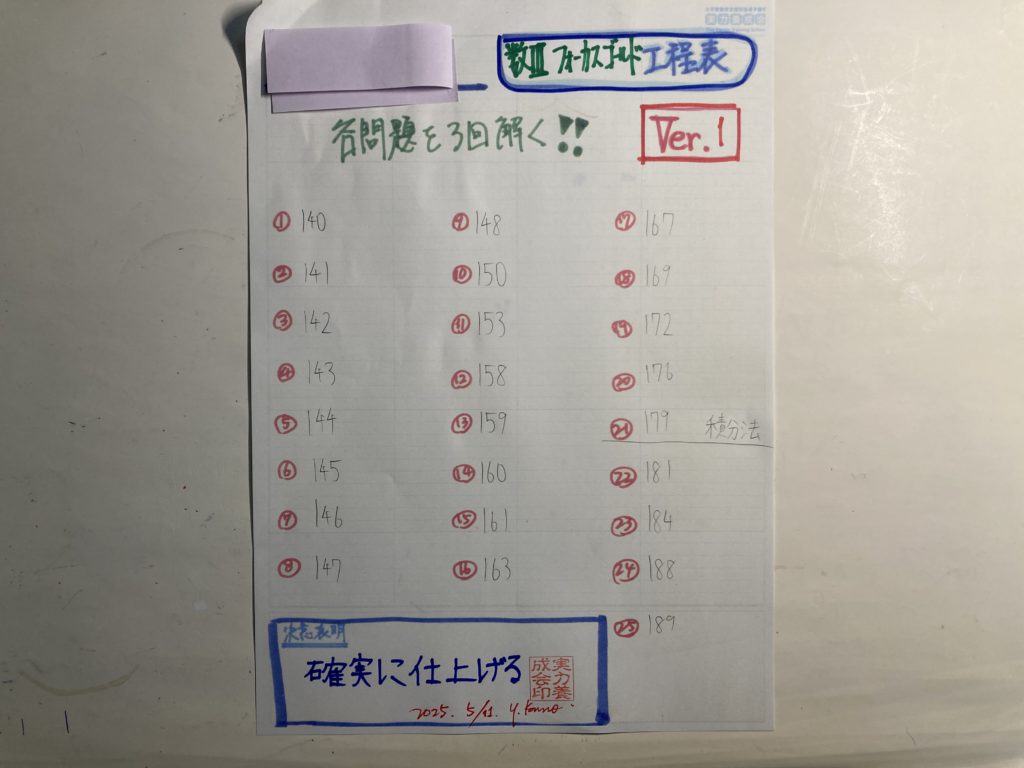 実力養成会
数Ⅲ フォーカスゴールド 工程表
各問題を3回解く!!
Ver.1
① 140
② 141
③ 142
④ 143
⑤ 144
⑥ 145
⑦ 146
⑧ 147
⑨ 148
⑩ 150
⑪ 153
⑫ 158
⑬ 159
⑭ 160
⑮ 161
⑯ 163
⑰ 167
⑱ 169
⑲ 172
⑳ 176
㉑ 179 積分法
㉒ 181
㉓ 184
㉔ 188
㉕ 189
決意表明
確実に仕上げる
実力養成会印
2025. 5/11. Y.Konno